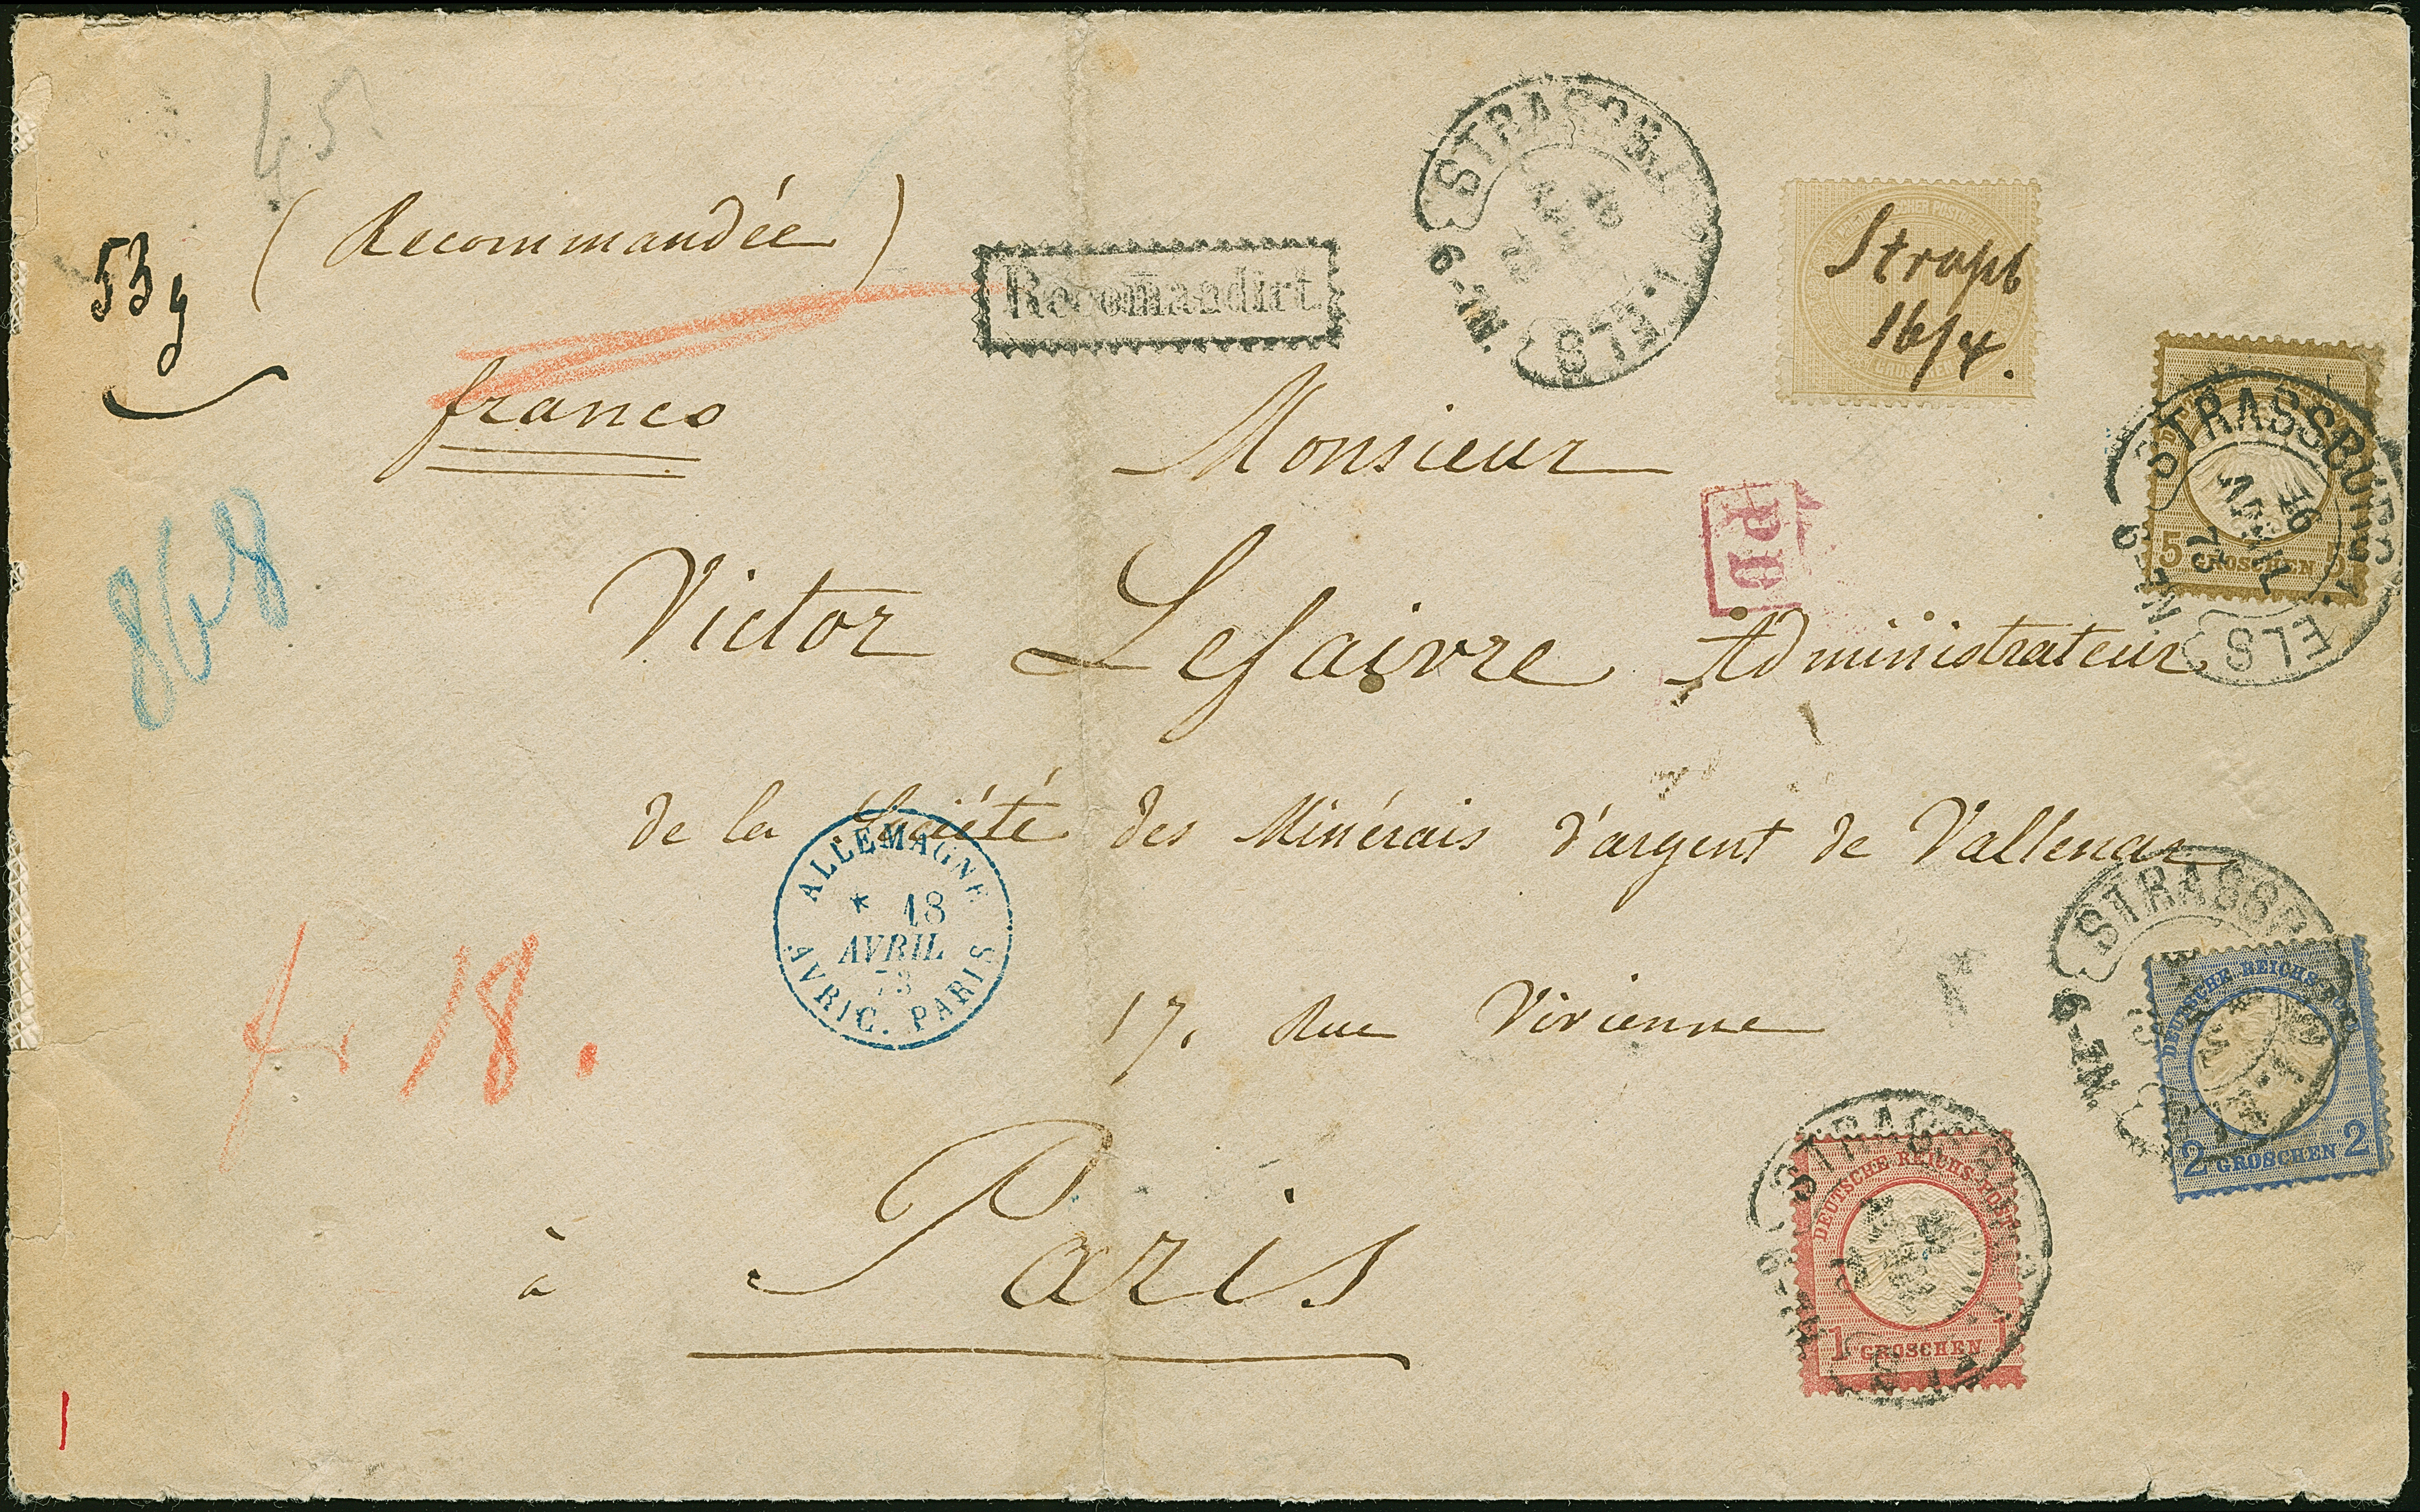 45
(Recommandée)
53g
Recomandirt
STRASSBURG I. ELS
N. 9
Strassb
16/4.
franco
Monsieur
PD
5 GROSCHEN 5
STRASSBURG I. ELS
16 APRIL 73
N. 9
868
Victor Lefaivre Administrateur
de la Société des Minérais d'argent de Vallenar
ALLEMAGNE
18
AVRIL
73
AVRIC. PARIS
fr 18.
17. Rue Vivienne
STRASSB
N. 9
DEUTSCHE REICHS-POST
2 GROSCHEN 2
à Paris
DEUTSCHE REICHS-POST
1 GROSCHEN 1